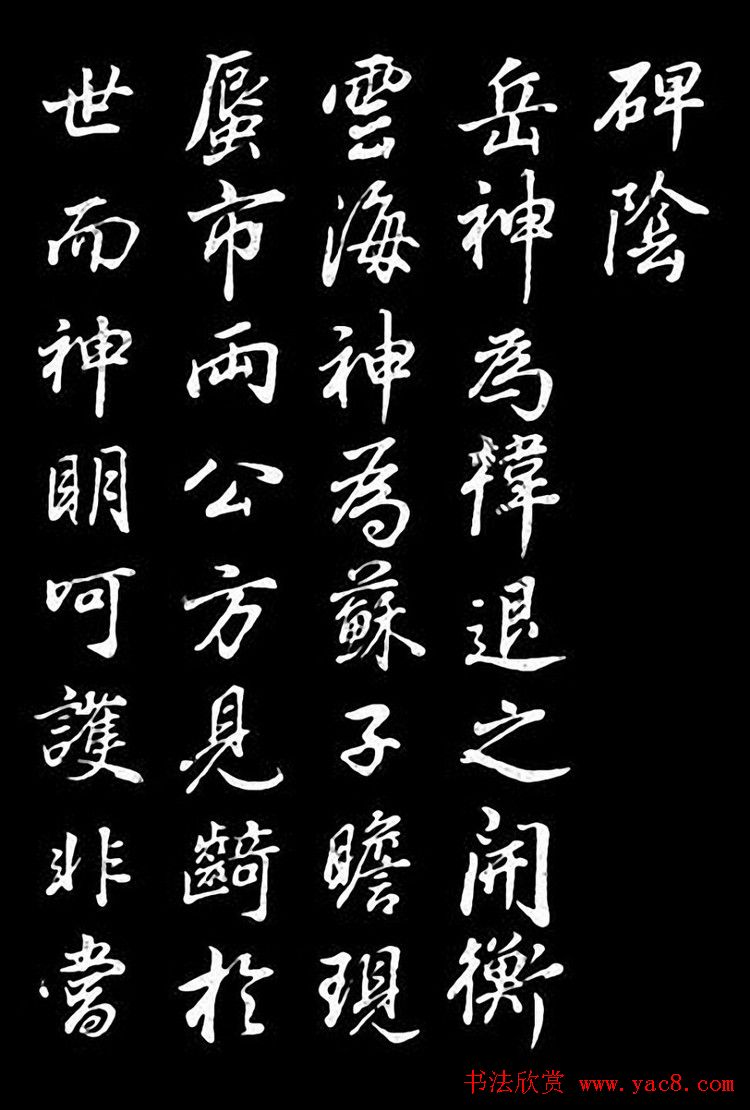 碑陰
岳神為韓退之開衡
雲海神為蘇子瞻現
蜃市兩公方見齮於
世而神明呵護非嘗
书法欣赏 www.yac8.com